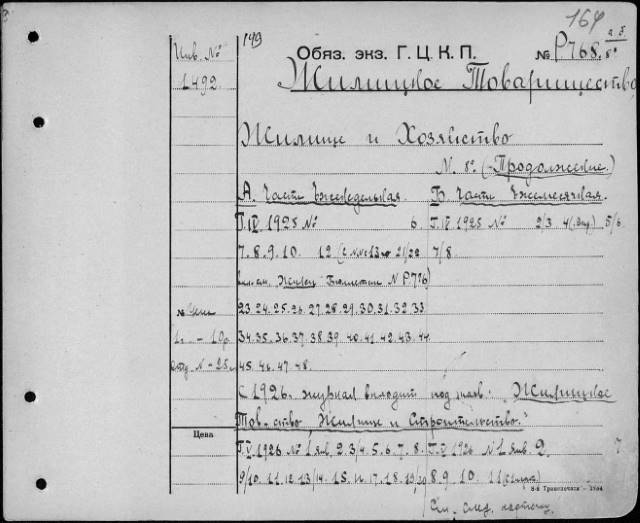 164
149
Инв. №
1492.
Обяз. экз. Г. Ц. К. П. № Р768. а.б. 8º
Жилищное Товарищество,
Жилище и Хозяйство
N. 8º (-Продолжение.)
А. Часть Еженедельная. Б. Часть Ежемесячная.
Г. IV. 1925 № 6. Г. IV 1925 № 2/3 4 5/6
7. 8. 9. 10. 12 (с №№ 13 по 21/22 7/8
Бюллетени N P.776)
23. 24. 25. 26. 27. 28. 29. 30. 31. 32. 33
№ Цена
1. - 10р. 34. 35. 36. 37. 38. 39. 40. 41. 42. 43. 44
отд. N - 25к. 45. 46. 47. 48.
С 1926г. журнал выходит под назв.: „Жилищное
Тов-ство, Жилище и Строительство."
Цена
Г. V. 1926 № 1 янв. 2. 3/4. 5. 6. 7. 8. Г. V 1926 № 1 янв. 2. 7
9/10. 11. 12. 13/14. 15. 17. 18. 19/20 8. 9. 10. 11
3-я Транспечати - 1984
См. след. карточку